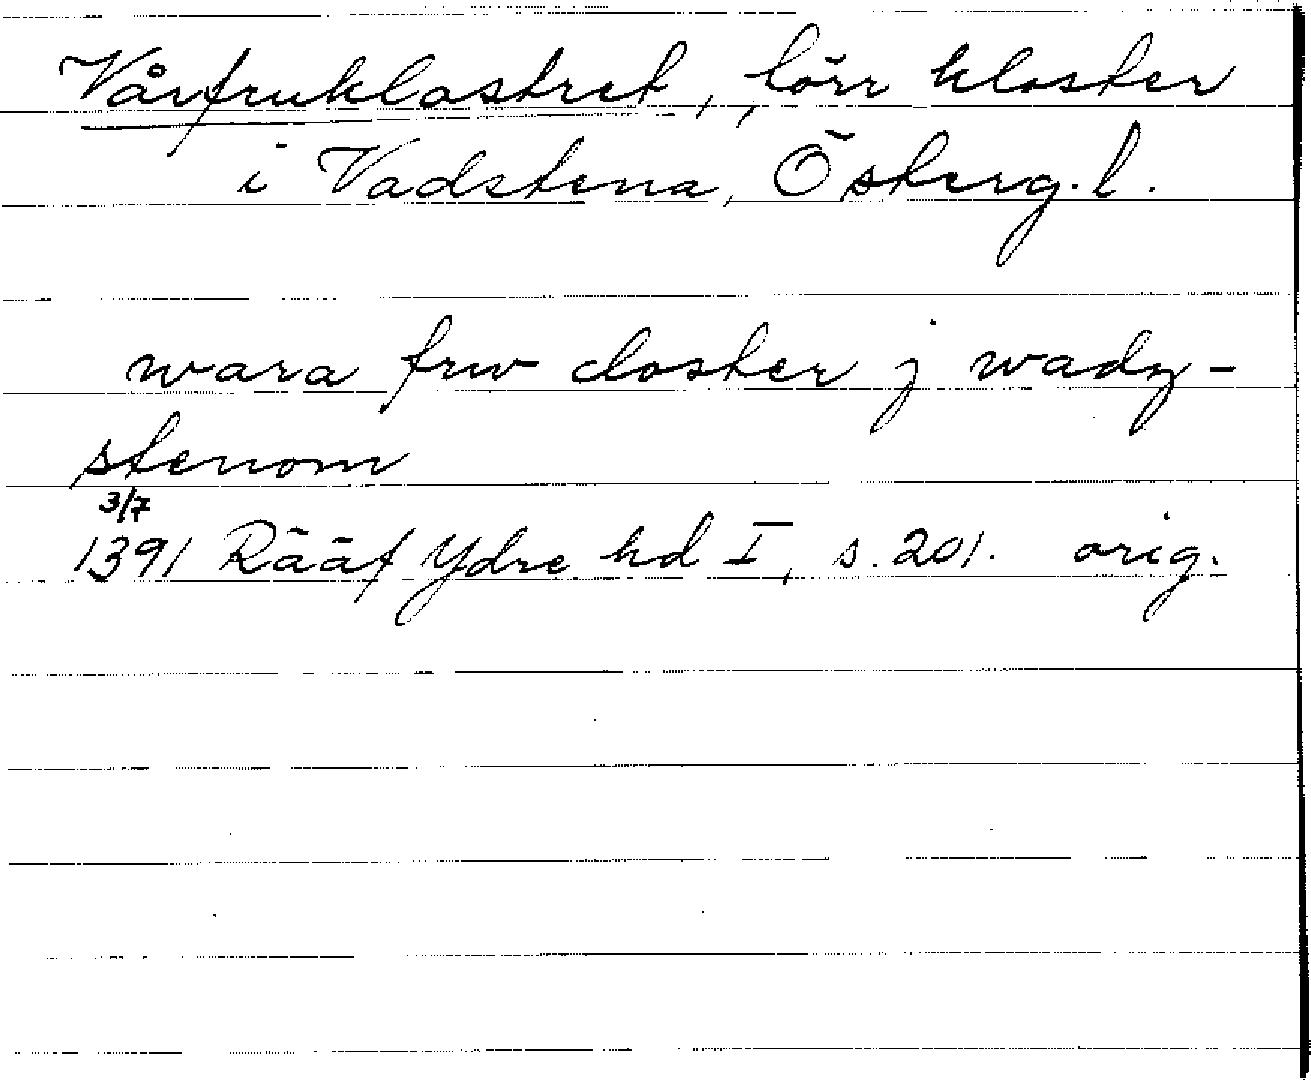 Vårfruklostret, förr kloster
i Vadstena, Österg.l.
wara frw closter j wadz-
stenom
3/7
1391 Rääf Ydre hd I, s. 201. orig.